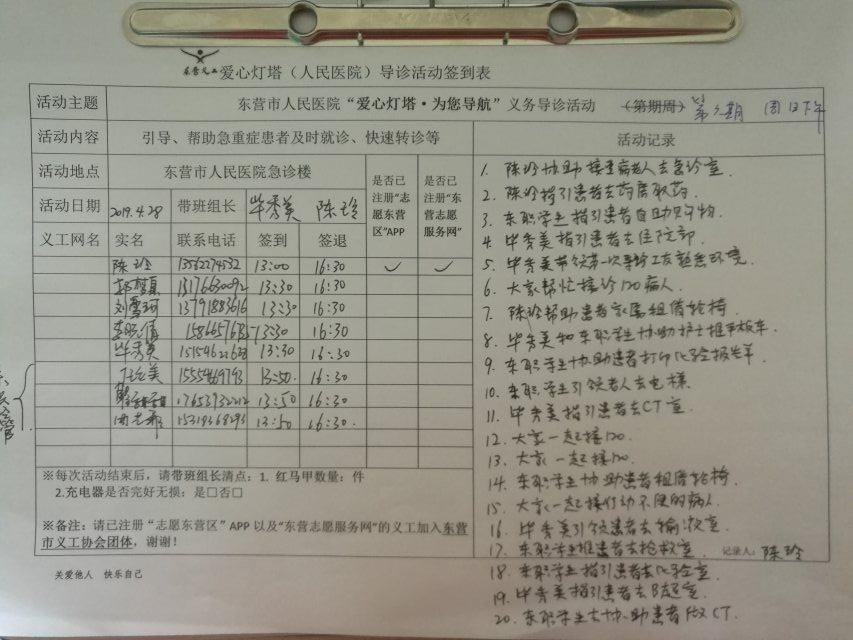 东营义工 爱心灯塔（人民医院）导诊活动签到表
活动主题 东营市人民医院“爱心灯塔·为您导航”义务导诊活动 （第期周） 第 期 周日下午
活动内容 引导、帮助急重症患者及时就诊、快速转诊等 活动记录
活动地点 东营市人民医院急诊楼 是否已注册“志愿东营区”APP 是否已注册“东营志愿服务网”
活动日期 2019.4.28 带班组长 毕秀美 陈玲
义工网名 实名 联系电话 签到 签退
陈玲 13562274532 13:00 16:30 ✓ ✓
13176630092 13:30 16:30
13791883616 13:30 16:30
13:30 16:30
毕秀美 13:30 16:30
15554469793 13:50 16:30
17653932212 13:50 16:30
13:50 16:30
※每次活动结束后，请带班组长清点：1. 红马甲数量： 件
2.充电器是否完好无损：是□否□
※备注：请已注册“志愿东营区”APP以及“东营志愿服务网”的义工加入东营
市义工协会团体，谢谢！
关爱他人 快乐自己
1. 陈玲协助接重病老人去急诊室.
2. 陈玲指引患者去药房取药.
3. 东职学生指引患者自助购物
4. 毕秀美指引患者去住院部.
5. 毕秀美带领第一次导诊工友熟悉环境.
6. 大家帮忙接诊120病人.
7. 陈玲帮助患者家属租借轮椅
8. 毕秀美和东职学生协助护士推平板车.
9. 东职学生协助患者打印化验报告单.
10. 东职学生引领老人去电梯.
11. 毕秀美指引患者去CT室.
12. 大家一起接120.
13. 大家一起接120.
14. 东职学生协助患者租借轮椅.
15. 大家一起接行动不便的病人.
16. 毕秀美引领患者去输液室.
17. 东职学生推患者去抢救室. 记录人：陈玲
18. 东职学生指引患者去化验室.
19. 毕秀美指引患者去B超室.
20. 东职学生去协助患者做CT.